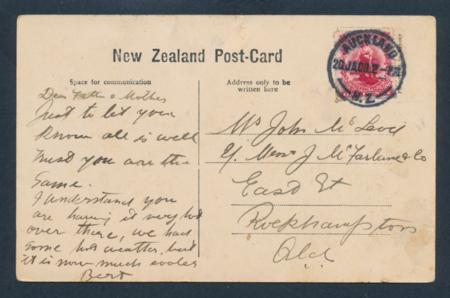 New Zealand Post-Card
Space for communication
Address only to be
written here
AUCKLAND
N.Z.
Dear Father & Mother
Just to let you
know all is well
trust you are the
same.
I understand you
are having it very hot
over there, we had
some hot weather, but
it is now much cooler
Bert
Mr John McLeod
C/ Messrs J McFarlane & Co
East St
Rockhampton
Qld